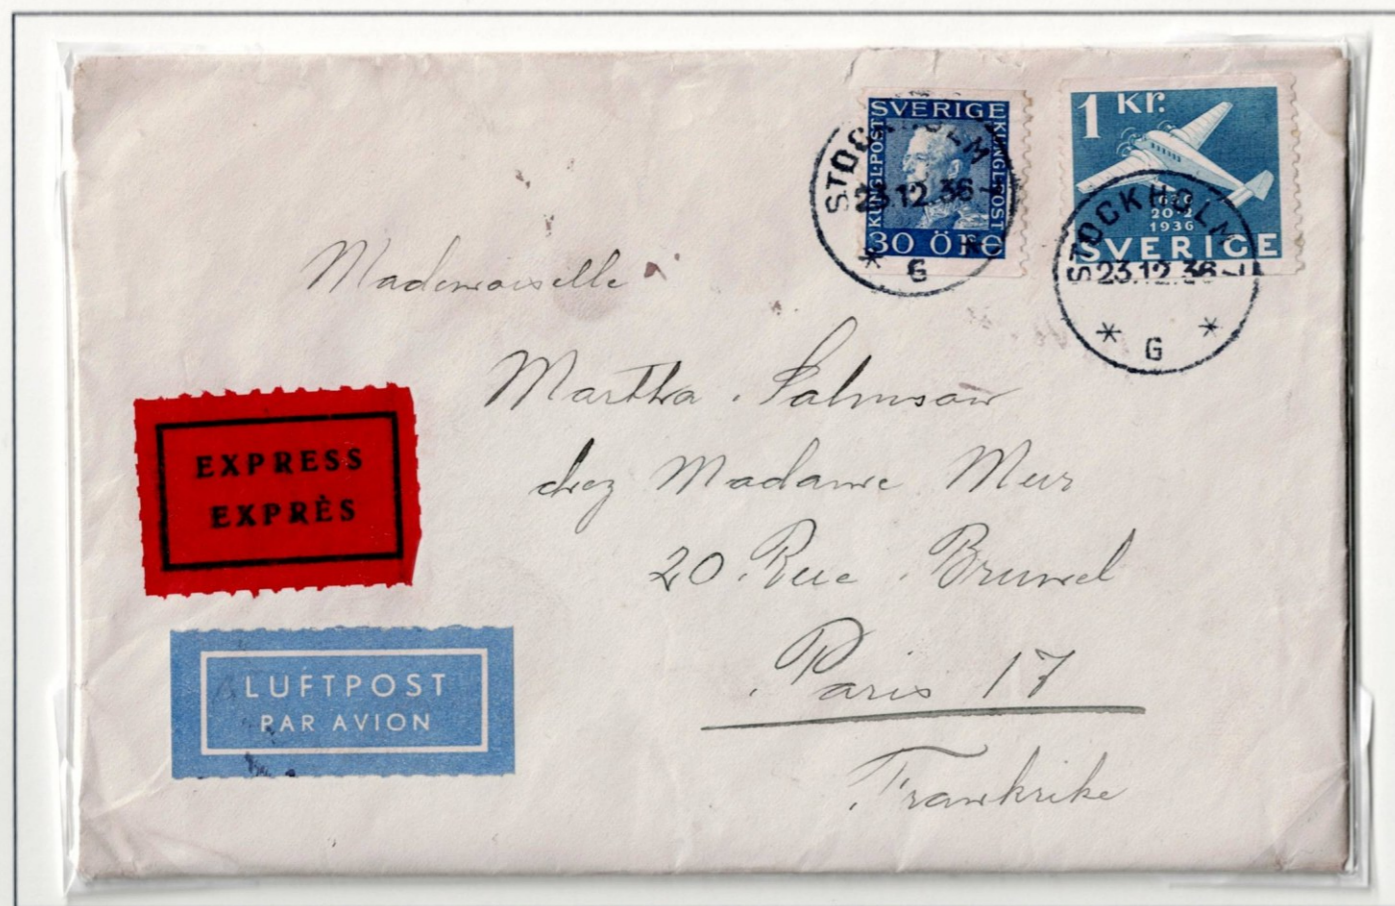 SVERIGE
KUNGL·POST
KUNGL·POST
30 ÖRE
STOCKHOLM 1
23.12.36
G
1 Kr.
20·2
1936
SVERIGE
STOCKHOLM 1
23.12.36
G
Mademoiselle
Martha
chez Madame Mur
20 Rue Brunel
Paris 17
Frankrike
EXPRESS
EXPRÈS
LUFTPOST
PAR AVION